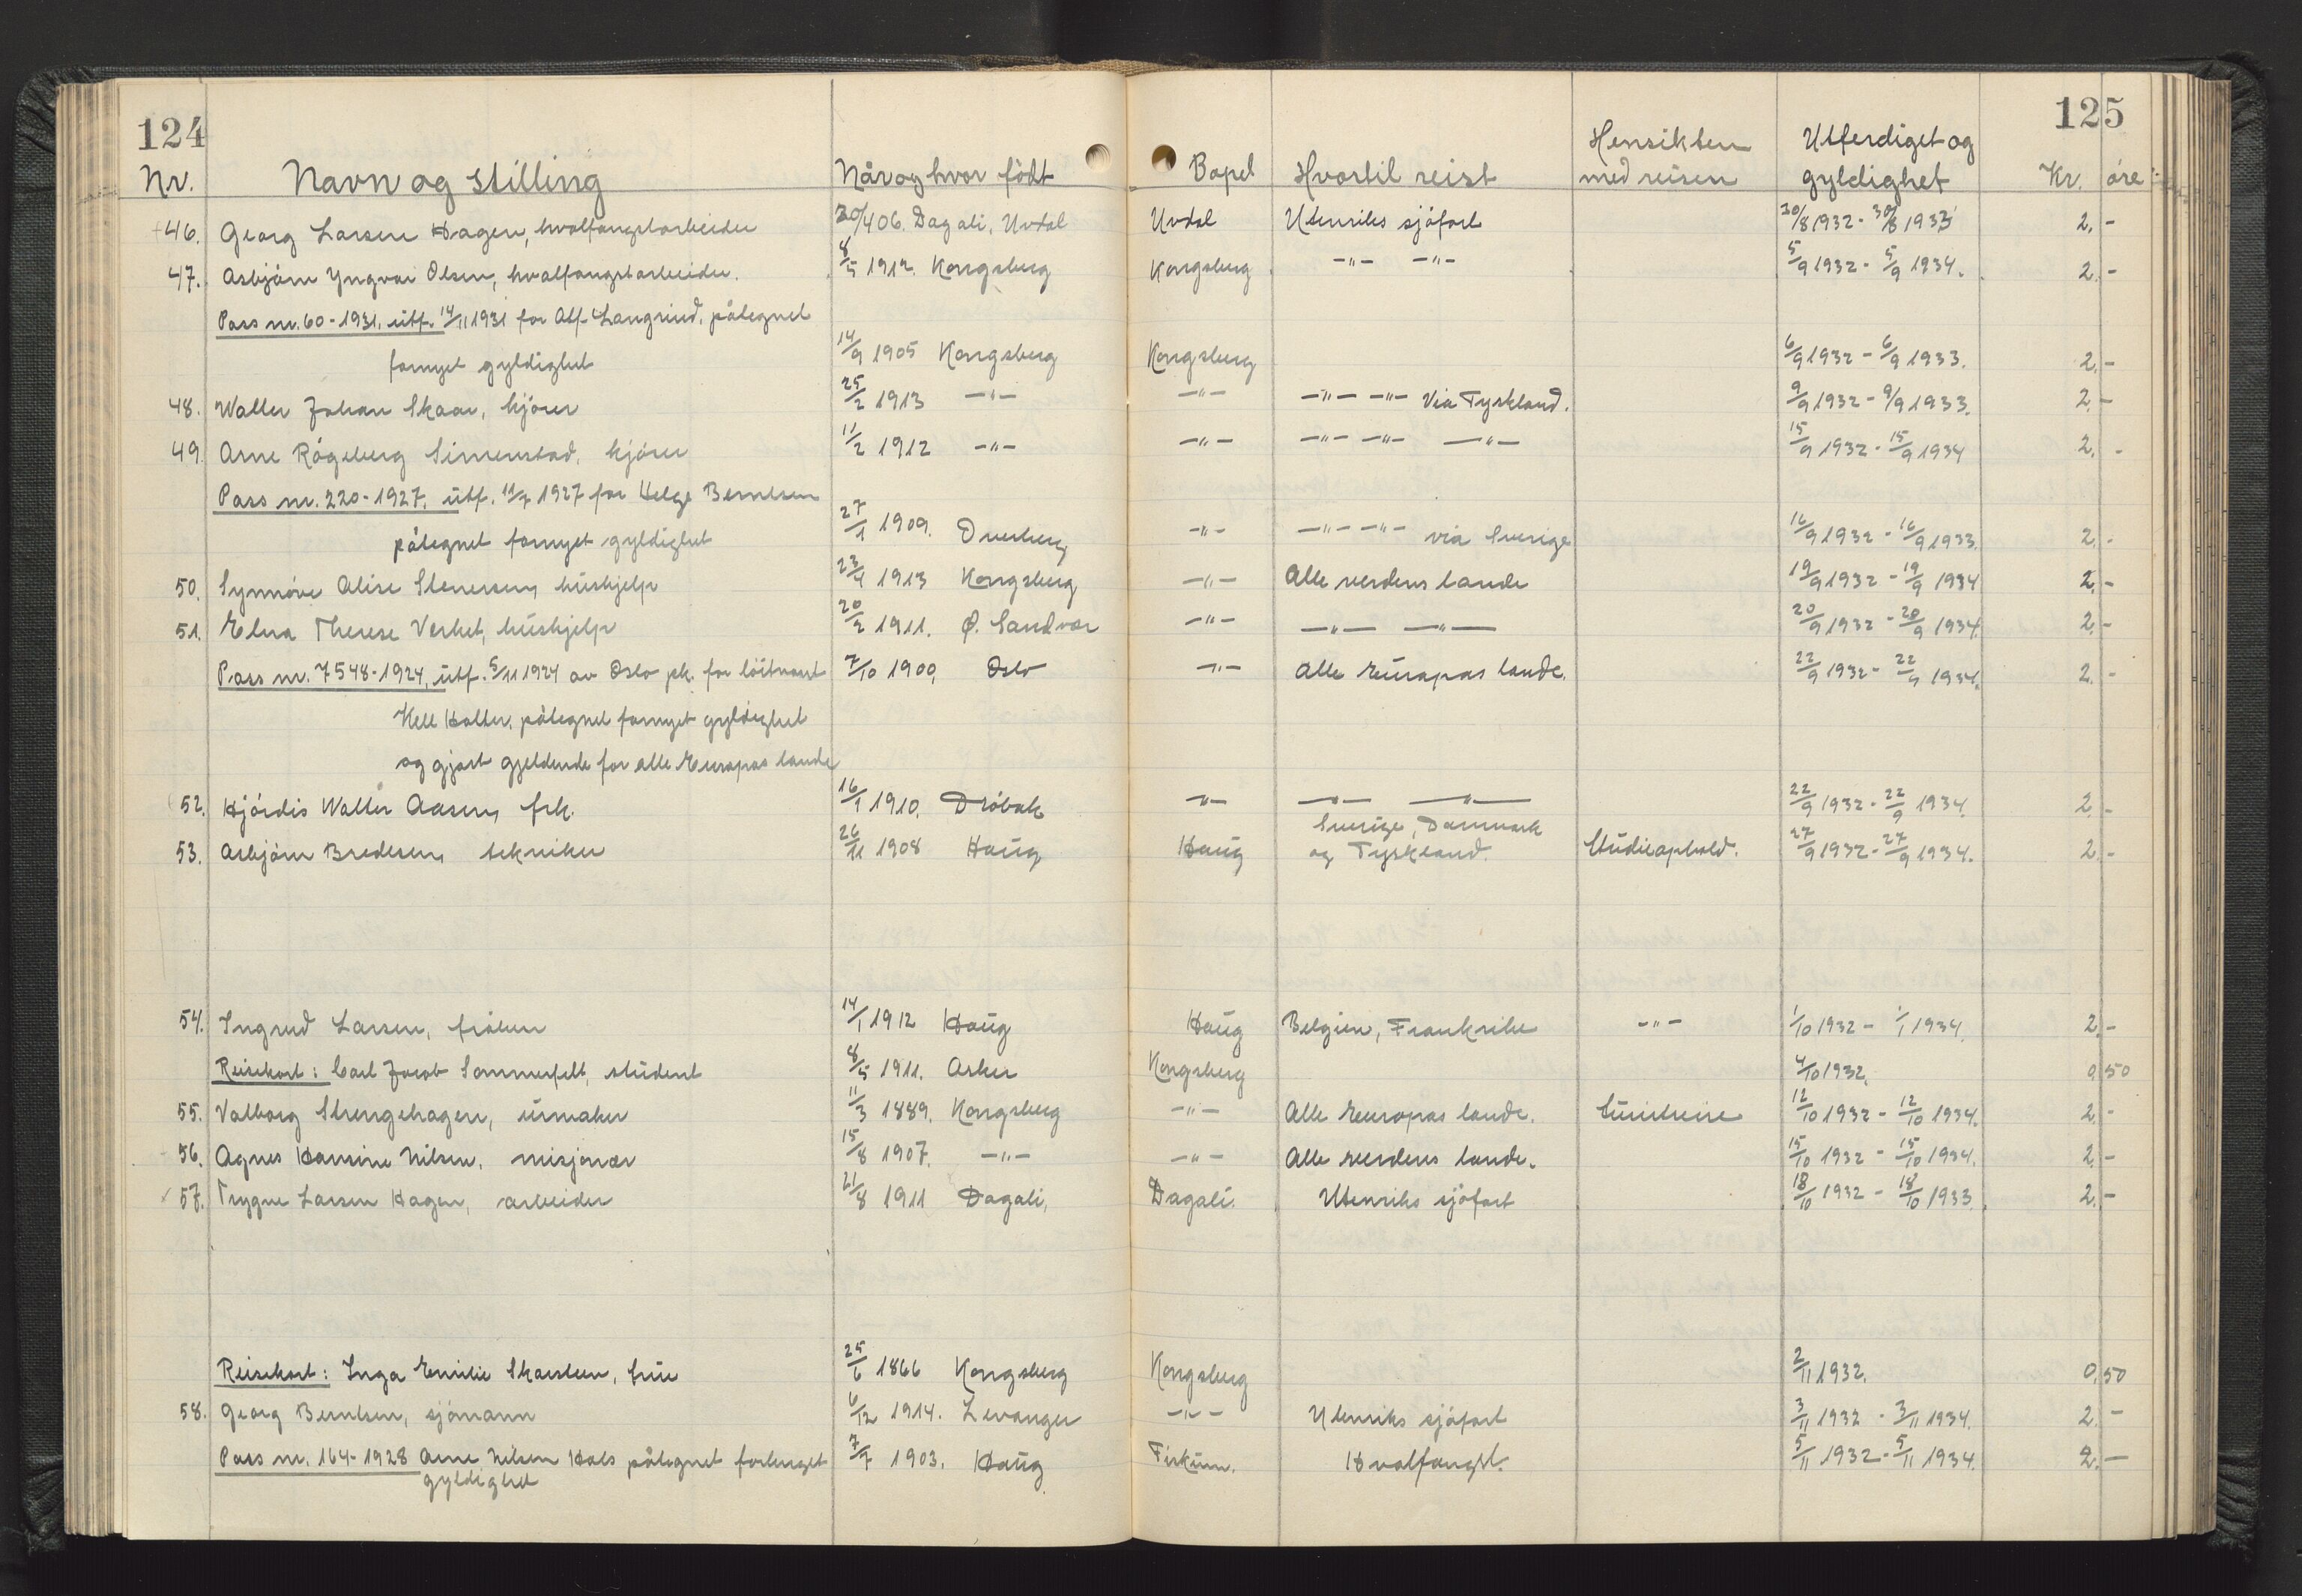 124
125
Nr. Navn og stilling Når og hvor födt Bopel Hvortil reist Hensikten med reisen Utferdiget og gyldighet Kr. öre
46. Georg Larsen Hagen, hvalfangstarbeider 20/4 06. Dagali, Uvdal Uvdal Utenriks sjöfart 30/8 1932 - 30/8 1933 2. -
47. Asbjörn Yngvar Olsen, hvalfangstarbeider. 8/5 1912. Kongsberg Kongsberg -"- -"- 5/9 1932 - 5/9 1934. 2. -
Pass nr. 60 - 1931, utf. 14/11 1931 for Alf Langrud, pålegnet
fornyet gyldighet 14/9 1905 Kongsberg Kongsberg 6/9 1932 - 6/9 1933. 2. -
48. Walter Johan Skaar, kjörer 25/2 1913 -"- -"- -"- -"- Via Tyskland. 9/9 1932 - 9/9 1933. 2. -
49. Arne Rögeberg Simenstad, kjörer 11/2 1912 -"- -"- -"- -"- -"- 15/9 1932 - 15/9 1934 2. -
Pass nr. 220 - 1927, utf. 11/7 1927 for Helge Berntsen
pålegnet fornyet gyldighet 27/1 1909. Dverberg -"- -"- -"- via Sverige 16/9 1932 - 16/9 1933. 2. -
50. Synnöve Alise Stenersen, hushjelp 23/4 1913 Kongsberg -"- Alle verdens lande 19/9 1932 - 19/9 1934 2. -
51. Elna Therese Verket, hushjelp 20/2 1911. Ö. Sandvær -"- -"- -"- 20/9 1932 - 20/9 1934. 2. -
Pass nr. 7548 - 1924, utf. 5/11 1924 av Oslo pk. for löitnant 7/10 1900, Oslo -"- Alle Europas lande. 22/9 1932 - 22/9 1934. 2. -
Kell Holter, pålegnet fornyet gyldighet
og gjort gjeldende for alle Europas lande
52. Hjördis Walter Aasen, frk. 16/1 1910. Dröbak -"- -"- -"- 22/9 1932 - 22/9 1934. 2. -
53. Asbjörn Bredesen, tekniker 26/11 1908 Haug Haug Sverige, Danmark og Tyskland. Studieophold. 27/9 1932 - 27/9 1934. 2. -
54. Ingrid Larsen, fröken 14/1 1912 Haug Haug Belgien, Frankrike -"- 1/10 1932 - 1/1 1934. 2. -
Reisekort: Carl Jacob Sommerfelt, student 8/5 1911. Asker Kongsberg 4/10 1932. 0,50
55. Valborg Strengehagen, urmaker 11/3 1889. Kongsberg -"- Alle Europas lande. turistreise 12/10 1932 - 12/10 1934. 2. -
56. Agnes Hansine Nilsen, misjonær 15/8 1907. -"- -"- Alle verdens lande. 15/10 1932 - 15/10 1934. 2. -
57. Trygve Larsen Hagen, arbeider 21/8 1911 Dagali, Dagali. Utenriks sjöfart 18/10 1932 - 18/10 1933. 2. -
Reisekort: Inga Emilie Skarsteen, frue 25/6 1866 Kongsberg Kongsberg 2/11 1932. 0,50
58. Georg Berntsen, sjömann 6/12 1914. Levanger -"- Utenriks sjöfart 3/11 1932 - 3/11 1934. 2. -
Pass nr. 164 - 1928 Arne Nilsen Hals pålegnet forlenget 7/7 1903. Haug Hvalfangst. 5/11 1932 - 5/11 1934. 2. -
gyldighet